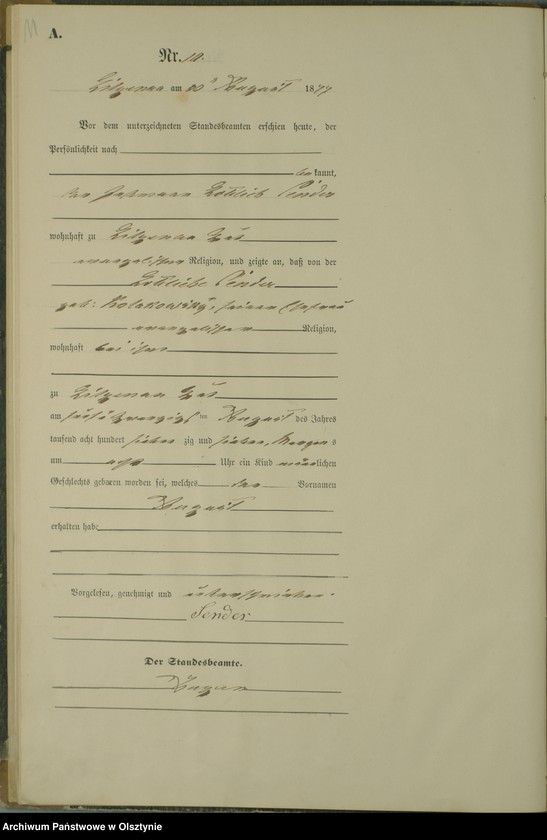 A.
Nr. 10.
am August 1877
Vor dem unterzeichneten Standesbeamten erschien heute, der
Persönlichkeit nach
bekannt,
Gottlieb
wohnhaft zu Gut
evangelischer Religion, und zeigte an, daß von der
Gottliebe
geb: seiner Ehefrau
evangelischer Religion,
wohnhaft bei ihm
zu Gut
am fünf u zwanzigsten August des Jahres
tausend acht hundert sieben zig und sieben, Morgens
um acht Uhr ein Kind männlichen
Geschlechts geboren worden sei, welches den Vornamen
August
erhalten habe
Vorgelesen, genehmigt und unterschrieben.
Sender
Der Standesbeamte.
Archiwum Państwowe w Olsztynie